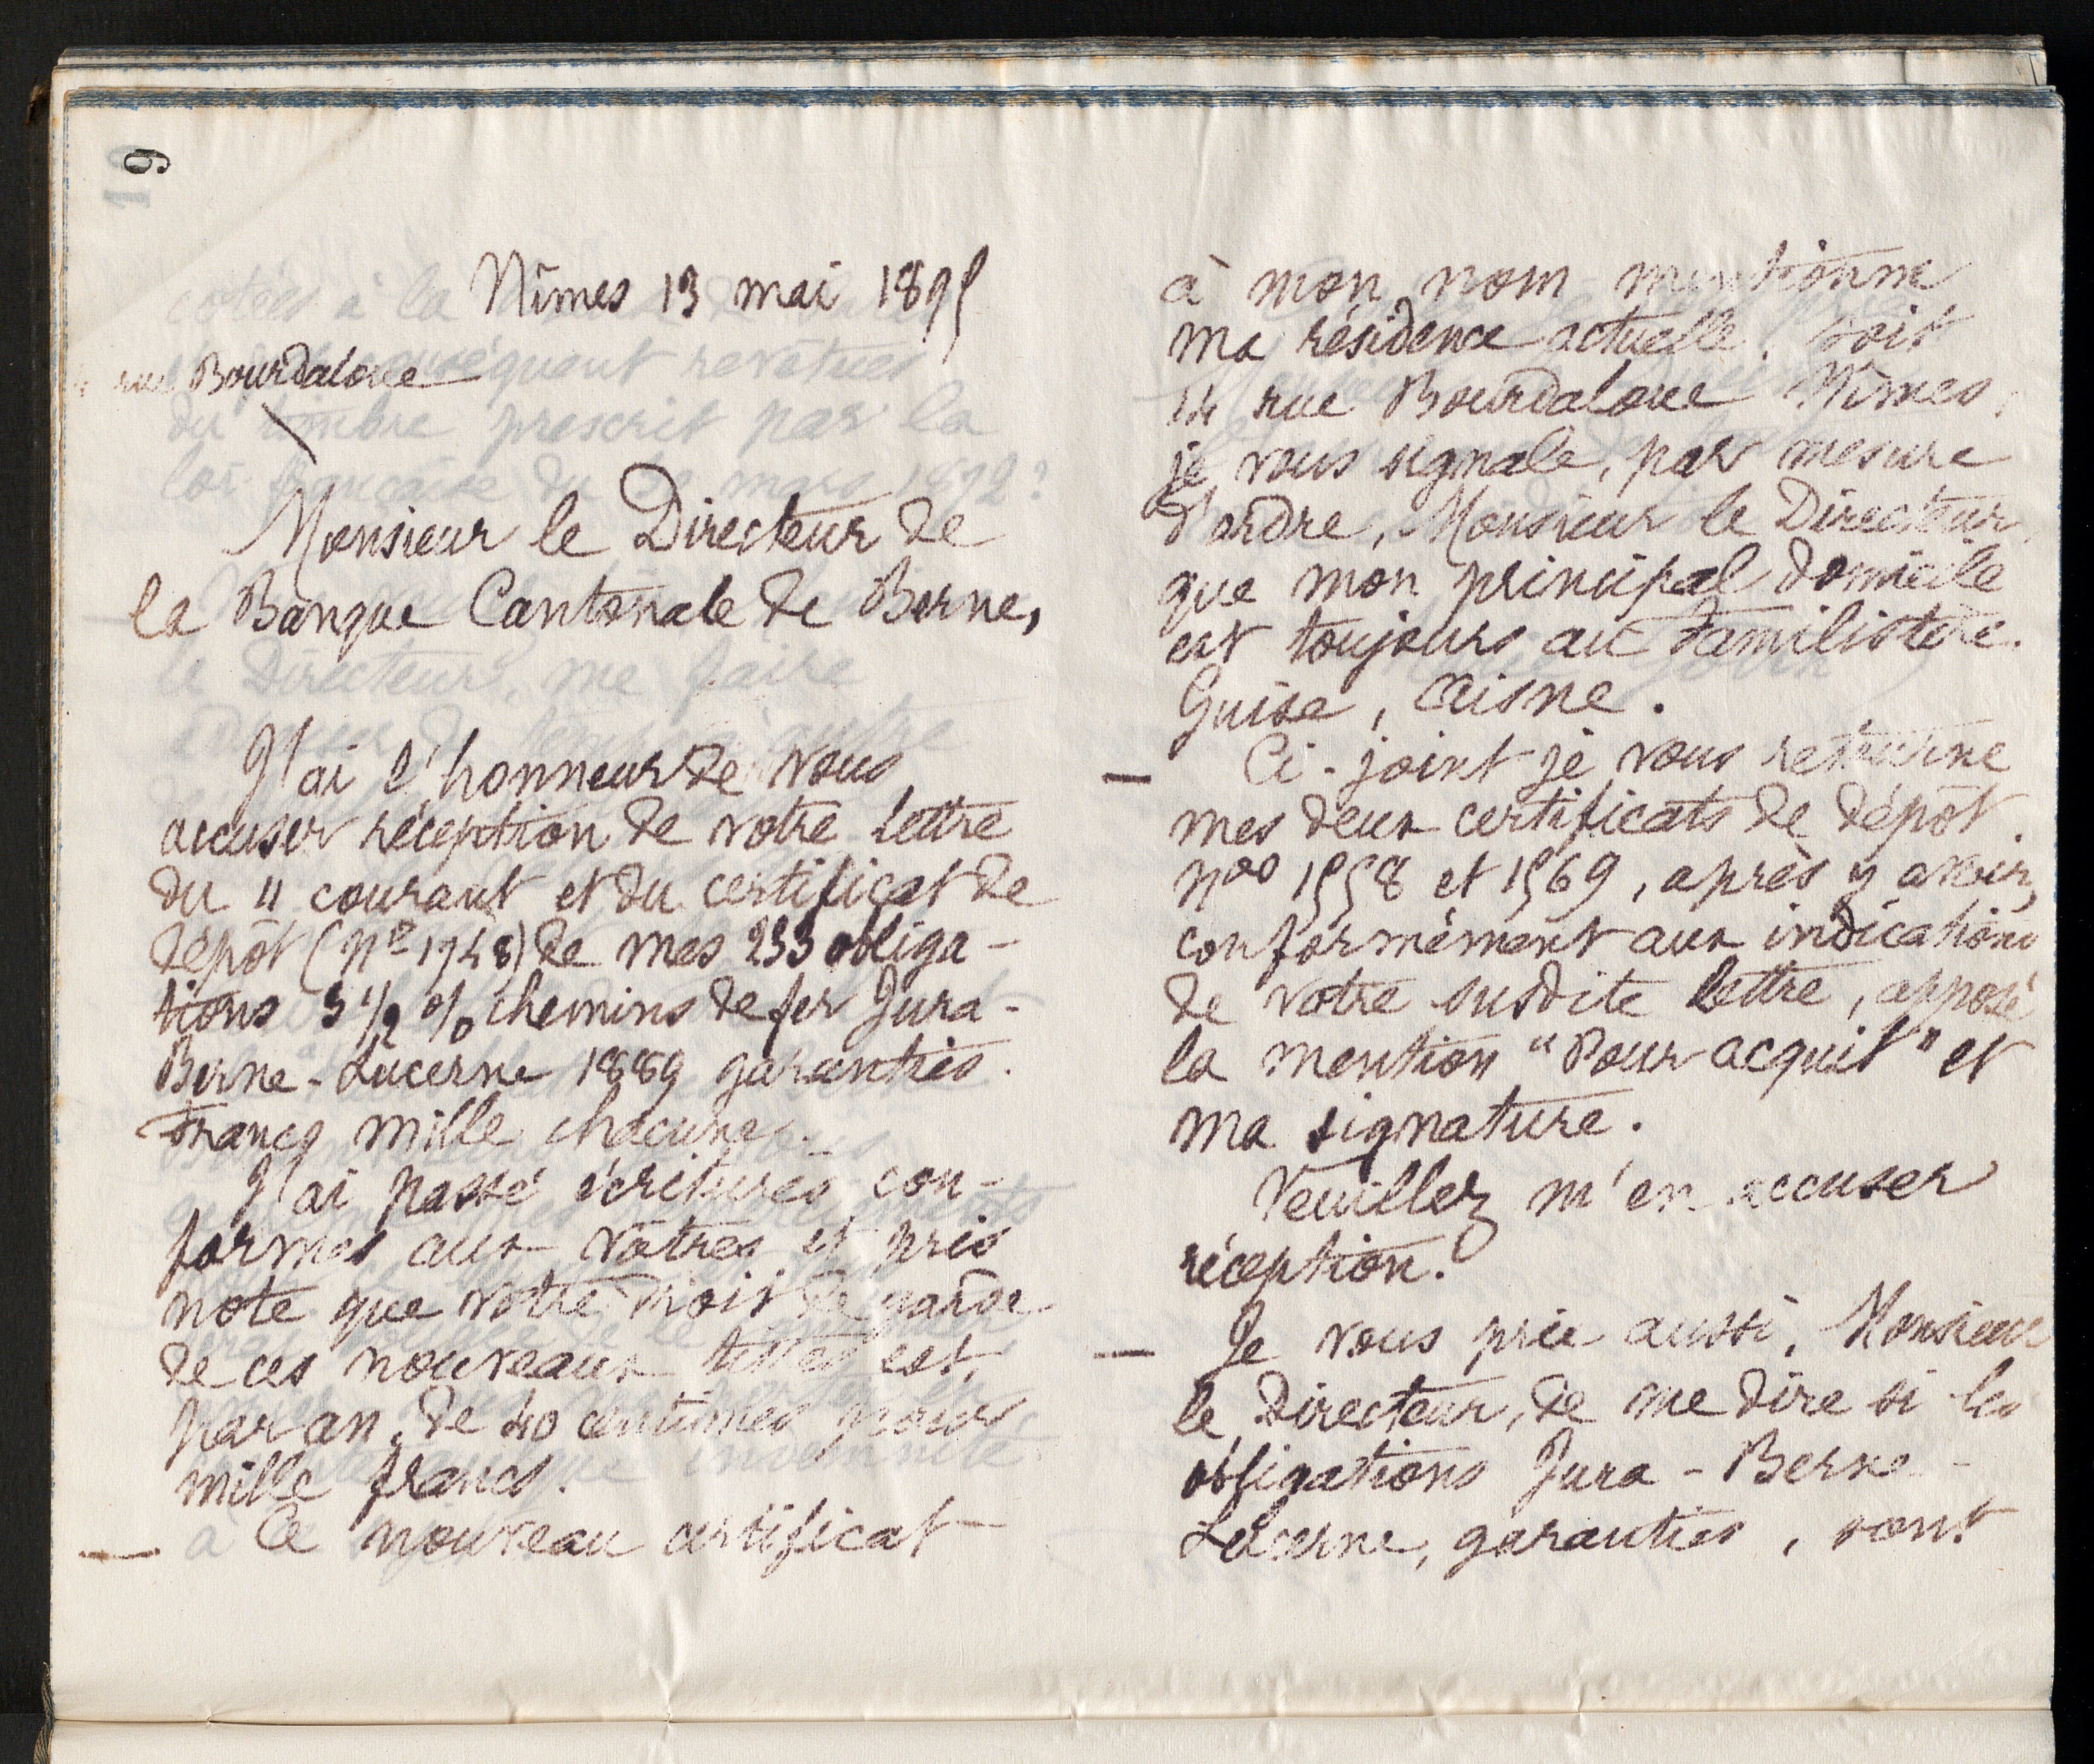 9
Nîmes 13 mai 1895
rue Bourdaloue
Monsieur le Directeur de
la Banque Cantonale de Berne,
J'ai l'honneur de vous
accuser réception de votre lettre
du 11 courant et du certificat de
dépôt (No 1748) de mes 233 obliga-
tions 3 1/2 % chemins de fer Jura-
Berne-Lucerne 1889 garanties.
Francs mille chacune.
J'ai passé écritures con-
formes aux vôtres et pris
note que votre droit de garde
de ces nouveaux titres est,
par an, de 40 centimes pour
mille francs.
— Ce nouveau certificat
à mon nom mentionne
ma résidence actuelle, soit
14 rue Bourdaloue Nîmes,
je vous signale, par mesure
d'ordre, Monsieur le Directeur,
que mon principal domicile
est toujours au Familistère.
Guise, Aisne.
— Ci-joint je vous retourne
mes deux certificats de dépôt.
nos 1558 et 1569, après y avoir,
conformément aux indications
de votre susdite lettre, apposé
la mention "Pour acquit" et
ma signature.
Veuillez m'en accuser
réception.
— Je vous prie aussi, Monsieur
le Directeur, de me dire si les
obligations Jura-Berne-
Lucerne, garanties, sont